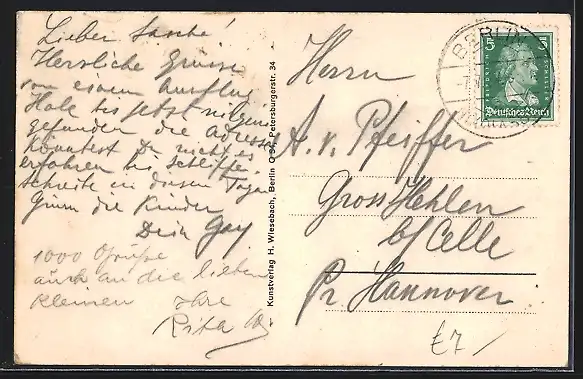 Lieber Sascha!
Herzliche Grüsse
von einem Ausflug
Habe bis jetzt nirgends
gefunden die Adresse
könntest Du nicht es
erfahren bei Schliffer.
schreibe in diesen Tagen
Grüss die Kinder
Dein Gay
1000 Grüsse
auch an die lieben
Kleinen Ihre
Rita W.
Kunstverlag H. Wiesebach, Berlin O 34, Petersburgerstr. 34
BERLIN
5 5
FRIEDRICH SCHILLER
Deutsches Reich
Herrn
A. v. Pfeiffer
Gross Hehlen
b/ Celle
Pr. Hannover
£7/